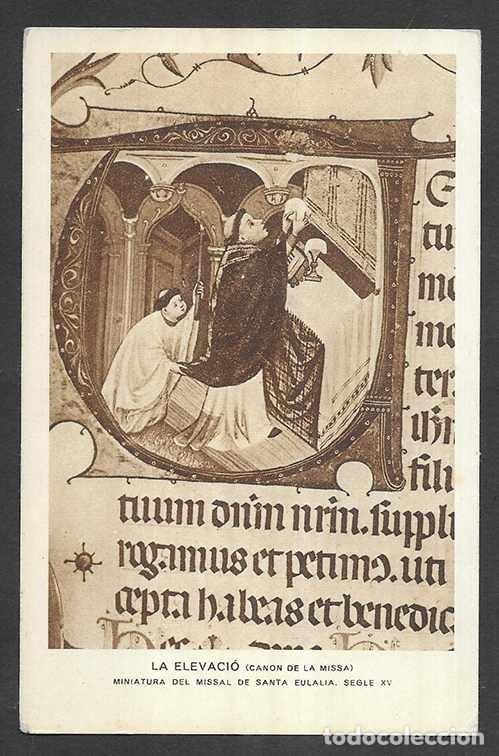 tu
me
mo
ter
ihn
fili
tuum dnm nrm. suppli
rogamus et petimꝰ. uti
cepta habeas et benedic
LA ELEVACIÓ (CANON DE LA MISSA)
MINIATURA DEL MISSAL DE SANTA EULALIA. SEGLE XV
todocoleccion.net